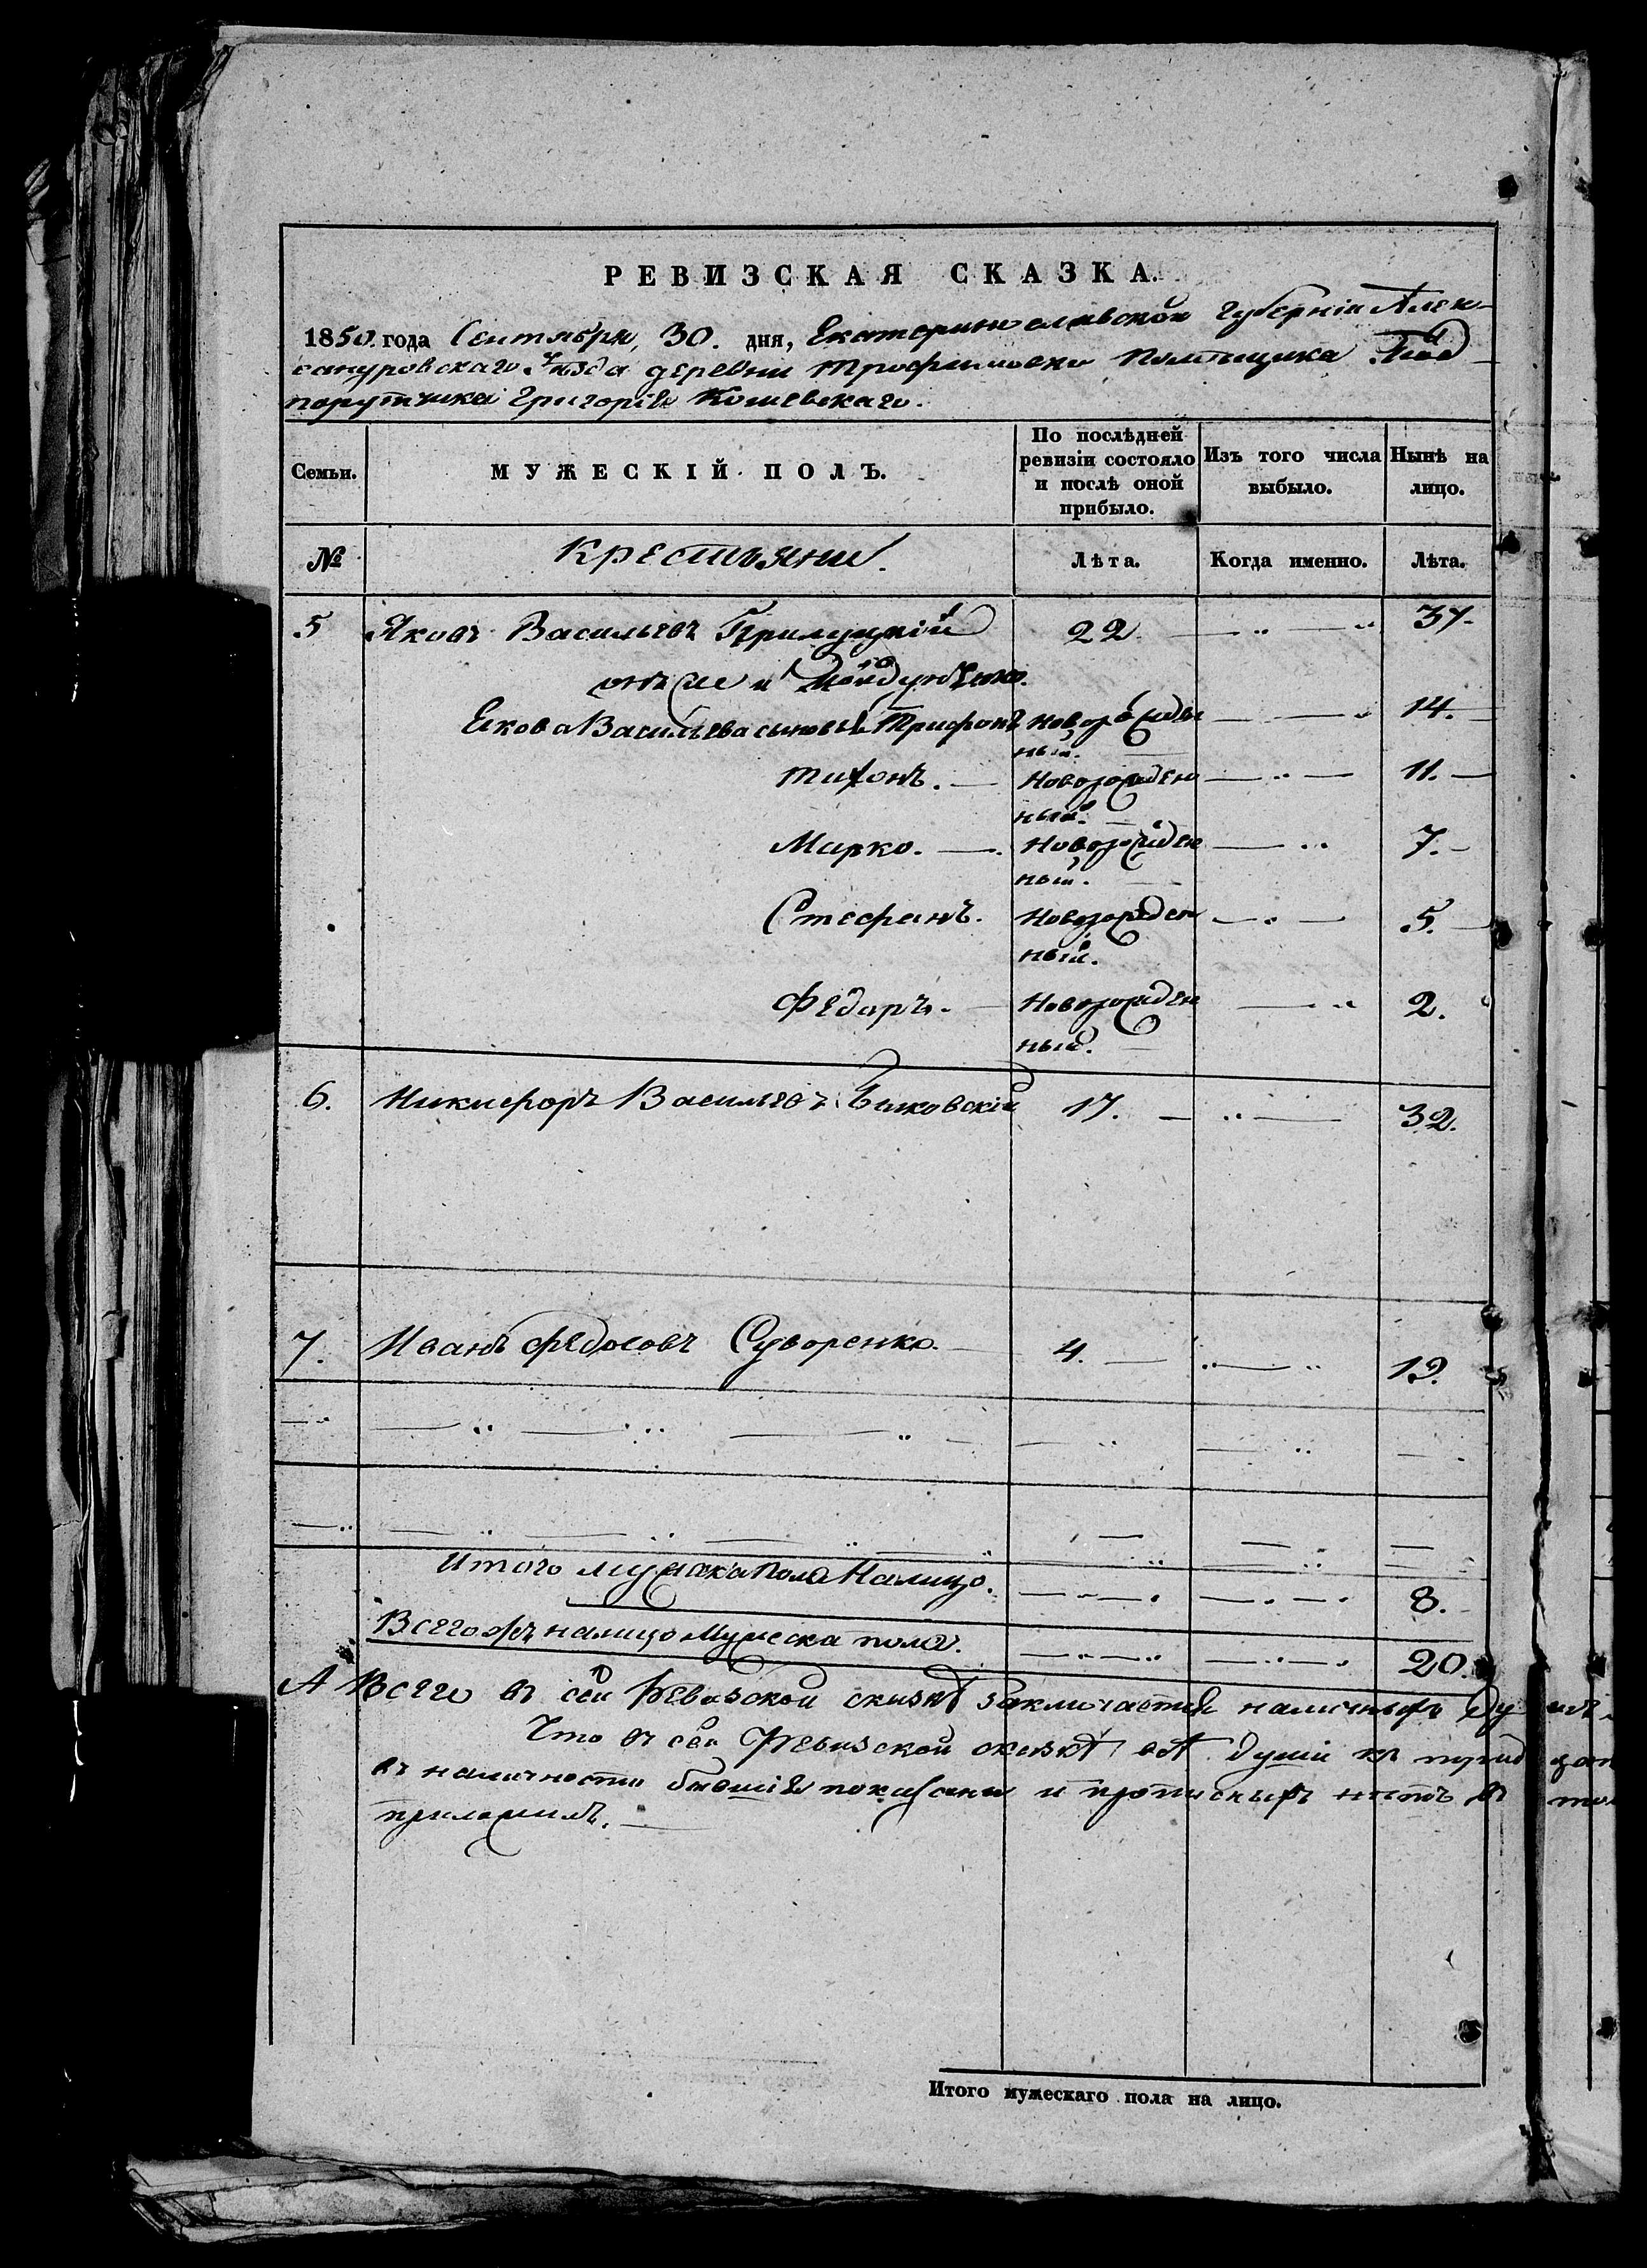 РЕВИЗСКАЯ СКАЗКА.
1850. года Сентября, 30. дня, Екатеринославской Губерніи Алек-
сандровскаго Уѣзда деревни Трофимовки Помѣщика Под-
порутчика Григорія Кошевскаго.
Семьи. МУЖЕСКІЙ ПОЛЪ. По послѣдней ревизіи состояло и послѣ оной прибыло. Изъ того числа выбыло. Нынѣ на лицо.
№ Крестьяне. Лѣта. Когда именно. Лѣта.
5 Яковъ Васильевъ Прилуцкій 22 37.
онъ же и
Якова Васильева сыновья Трифонъ новорожден 14.
ный.
Тихонъ. Новорожден 11.
ный.
Марко. Новорожден 7.
ный.
Стефанъ. Новорожден 5.
ный.
Федоръ. Новорожден 2.
ный.
6. Никифоръ Васильевъ Быковскій 17. 32.
7. Иванъ Федосовъ Суворенко. 4. 19.
Итого мужска пола Налицо. 8.
Всего налицо Мужеска пола. 20.
А Всего въ сей Ревизской сказкѣ заключается наличныхъ ду
Что въ сей Ревизской сказкѣ всѣ души
въ наличности бывшія показаны и прописныхъ нѣтъ въ
приложилъ.
Итого мужескаго пола на лицо.